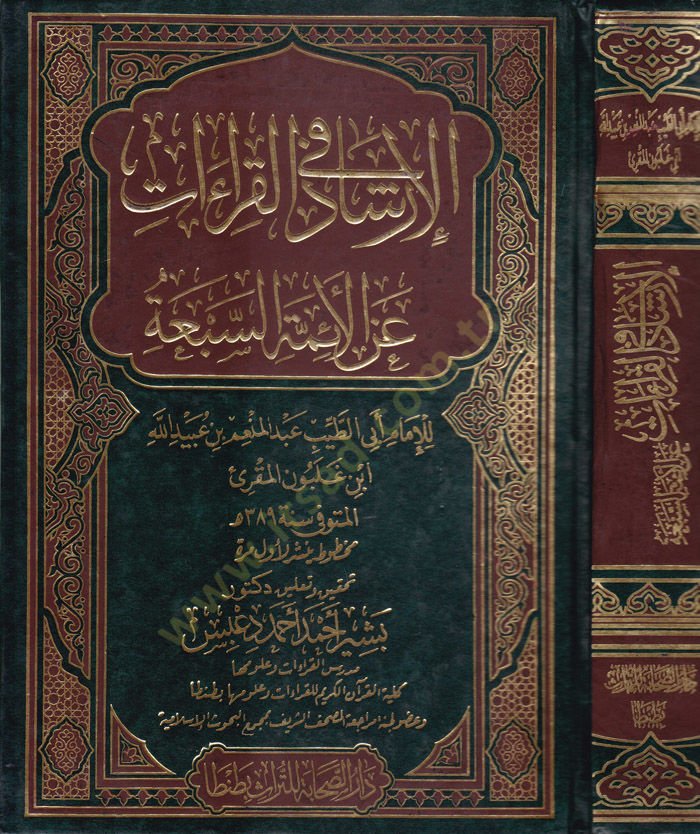 الإرشاد في القراءات
عن الأئمة السبعة
للإمام أبي الطيب عبد المنعم بن عبيد الله
ابن غلبون المقرئ
المتوفى سنة ٣٨٩هـ
مخطوط ينشر لأول مرة
تحقيق وتعليق دكتور
بشير أحمد أحمد دعبس
مدرس القراءات وعلومها
كلية القرآن الكريم للقراءات وعلومها بطنطا
وعضو لجنة مراجعة المصحف الشريف بمجمع البحوث الإسلامية
دار الصحابة للتراث بطنطا
أبي الطيب عبد المنعم بن عبيد الله
ابن غلبون المقرئ
الإرشاد في القراءات
عن الأئمة السبعة
دار الصحابة للتراث
بطنطا